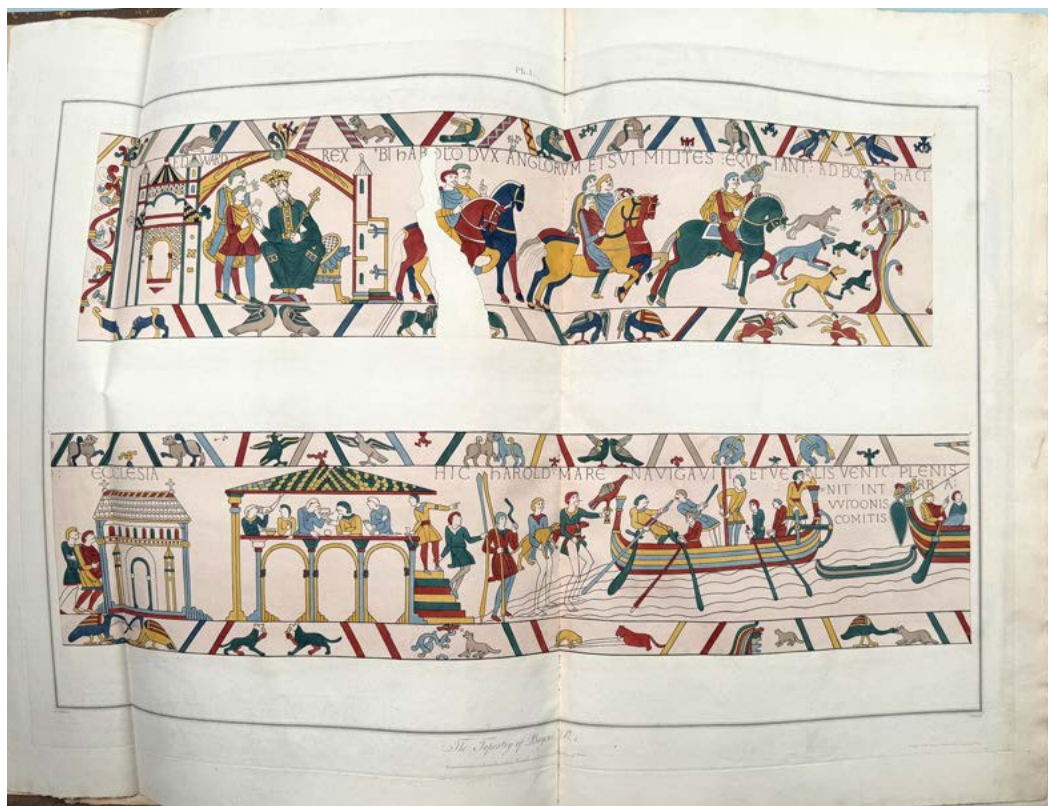 Pl. I.
EDWARD REX VBI hAROLD DVX ANGLORVM ET SVI MILITES : EQVI TANT : AD BOS
: ECCLESIA HIC hAROLD : MARE NAVIGAVIT ET VE LIS VENTC PLENIS
NIT INT RRA :
VVIDONIS
COMITIS
The Tapestry of